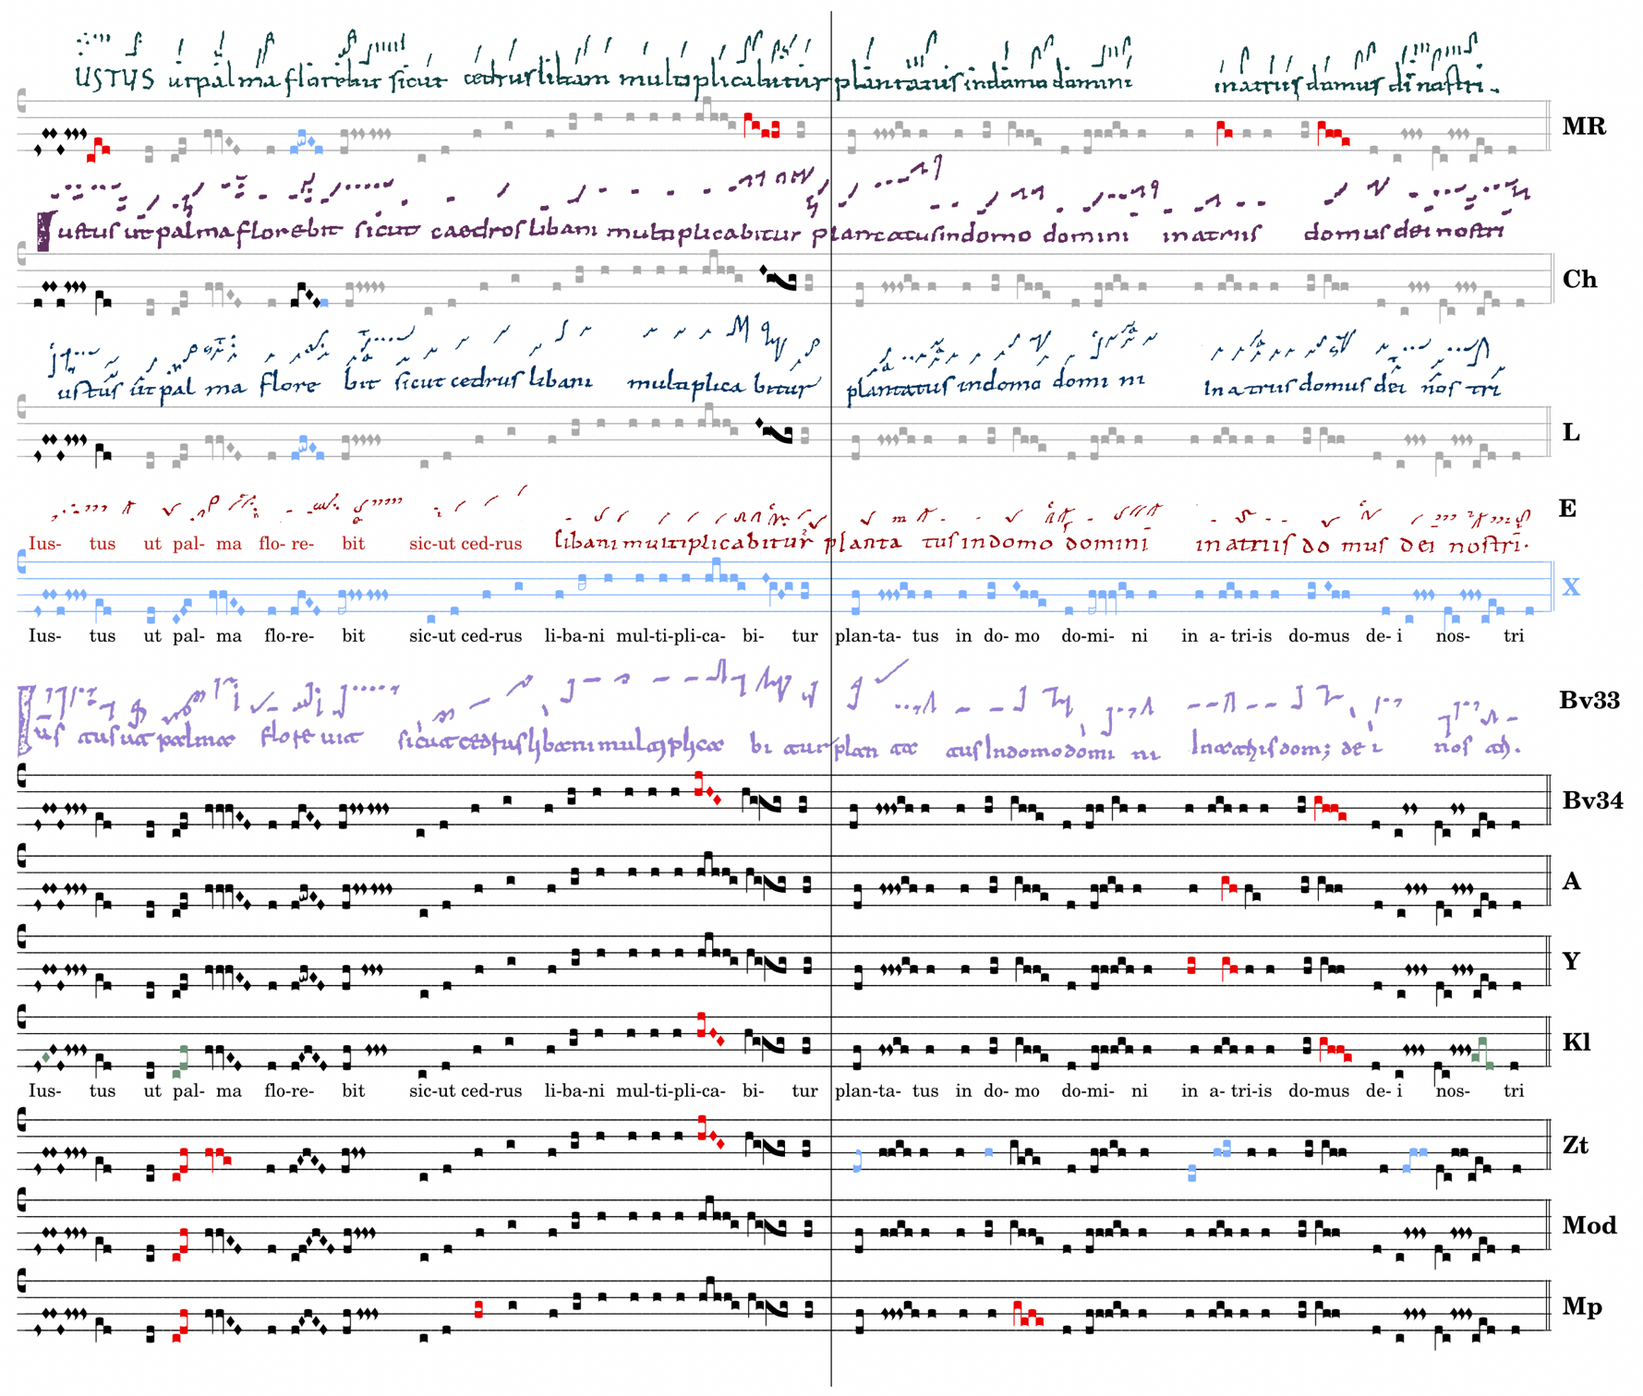 USTUS ut palma florebit sicut cedrus libani multiplicabitur plantatus in domo domini in atriis domus di nostri.
MR
Iustus ut palma florebit sicut caedros libani multiplicabitur plantatus in domo domini in atriis domus dei nostri
Ch
ustus ut pal ma flore bit sicut cedrus libani multiplica bitur plantatus in domo domi ni In atrius domus dei nos tri
L
E
Ius- tus ut pal- ma flo- re- bit sic-ut ced-rus libani multiplicabitur planta tus in domo domini in atriis do mus dei nostri.
X
Ius- tus ut pal- ma flo-re- bit sic-ut ced-rus li-ba-ni mul-ti-pli-ca- bi- tur plan-ta- tus in do- mo do-mi- ni in a- tri-is do-mus de- i nos- tri
Bv33
Bv34
A
Y
Kl
Ius- tus ut pal- ma flo-re- bit sic-ut ced-rus li-ba-ni mul-ti-pli-ca- bi- tur plan-ta- tus in do- mo do-mi- ni in a- tri-is do-mus de- i nos- tri
Zt
Mod
Mp